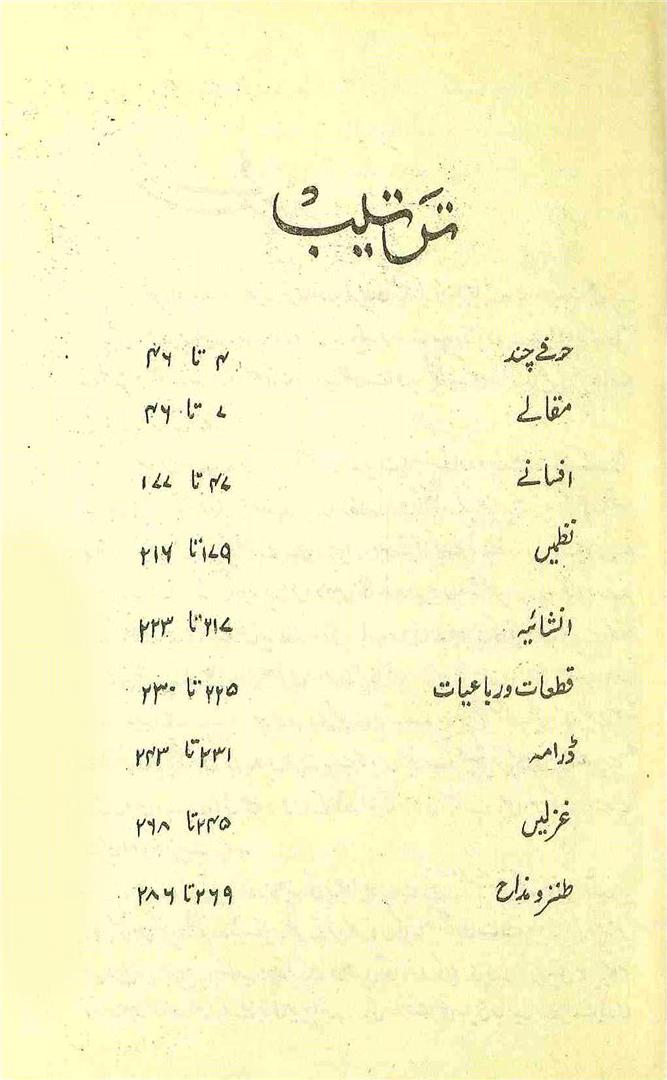 ترتیب
حرفے چند ۴ تا ۴۶
مقالے ۷ تا ۴۶
افسانے ۴۷ تا ۱۷۷
نظمیں ۱۷۹ تا ۲۱۶
انشائیہ ۲۱۷ تا ۲۲۳
قطعات و رباعیات ۲۲۵ تا ۲۳۰
ڈرامہ ۲۳۱ تا ۲۴۳
غزلیں ۲۴۵ تا ۲۶۸
طنز و مذاح ۲۶۹ تا ۲۸۶